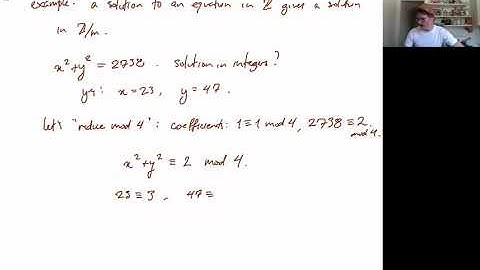 example: a solution to an equation in ℤ gives a solution
in ℤ/m.
x² + y² = 2738. solution in integers?
yes: x = 23, y = 47.
Let's "reduce mod 4": coefficients: 1 ≡ 1 mod 4, 2738 ≡ 2 mod 4.
x² + y² ≡ 2 mod 4.
23 ≡ 3, 47 ≡